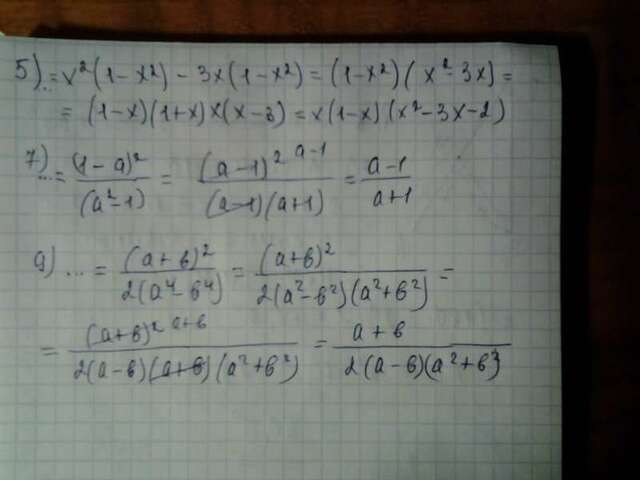 5) ...= x²(1-x²) - 3x(1-x²) = (1-x²)(x²-3x) =
= (1-x)(1+x)x(x-3) = x(1-x)(x²-3x-2)
7) ... = (1-a)²/(a²-1) = (a-1)² a-1/(a-1)(a+1) = a-1/a+1
9) ... = (a+b)²/2(a⁴-b⁴) = (a+b)²/2(a²-b²)(a²+b²) =
= (a+b)² a+b/2(a-b)(a+b)(a²+b²) = a+b/2(a-b)(a²+b²)